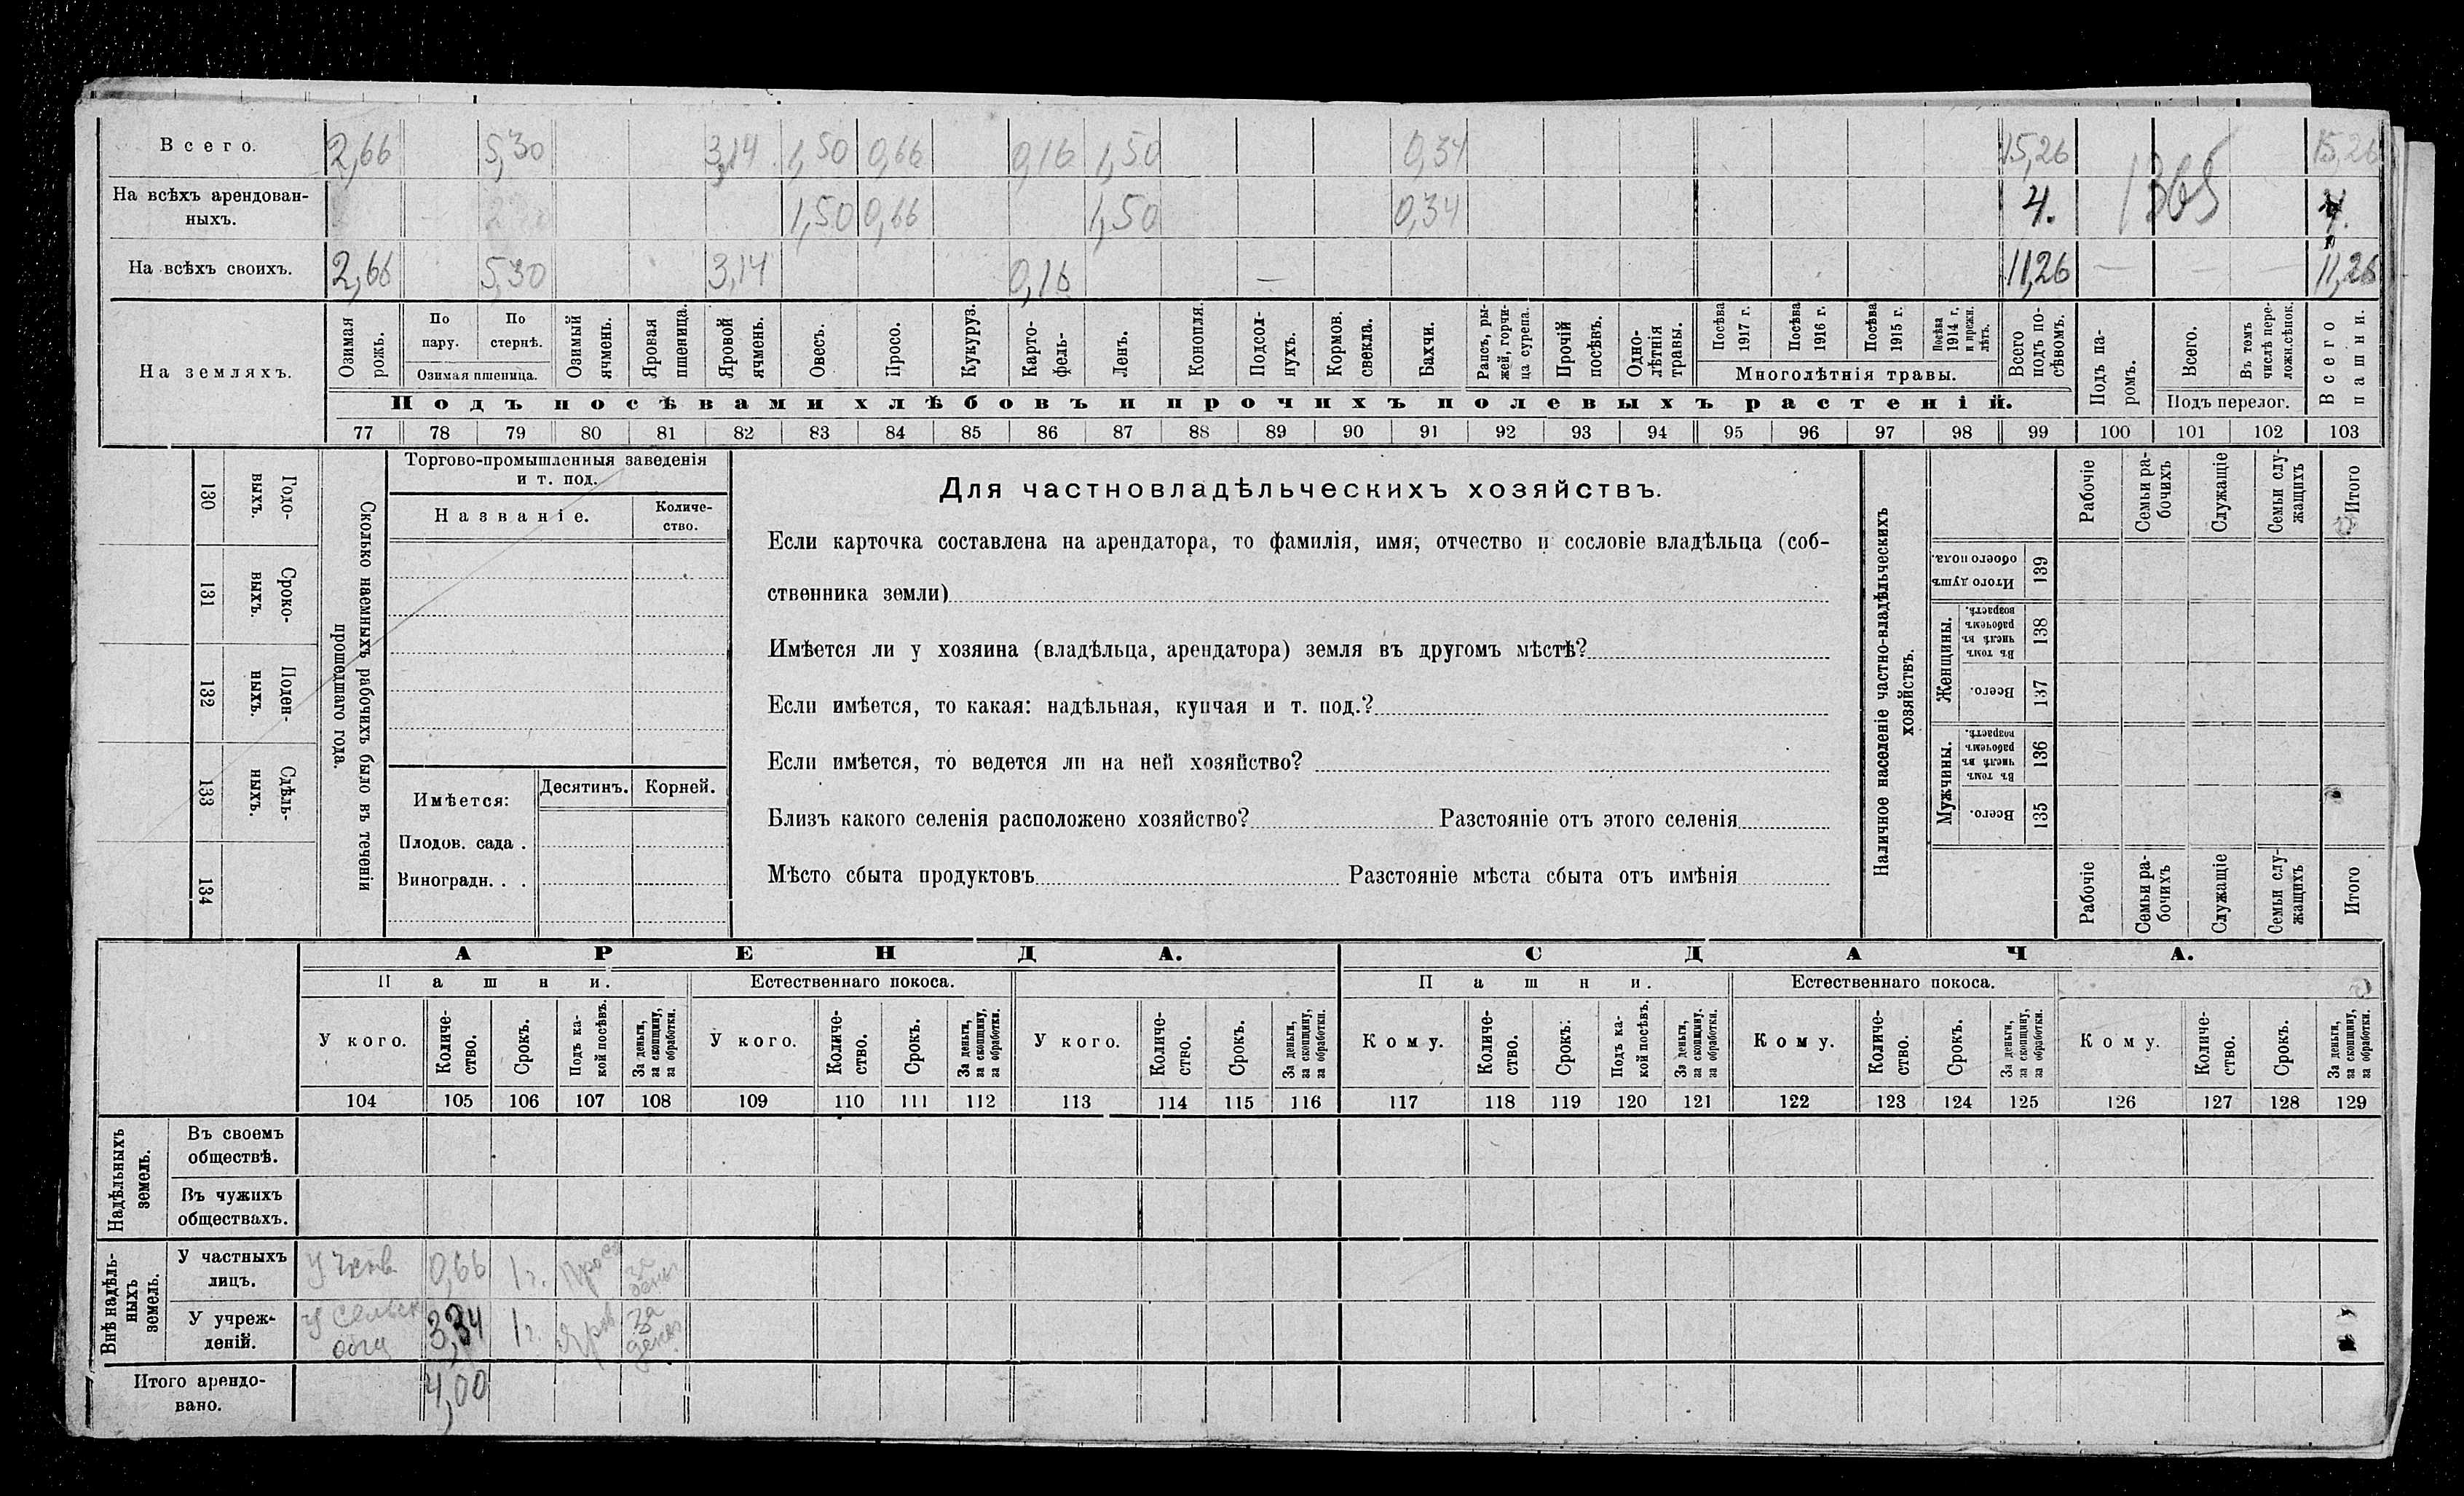 Всего. 2,66 5,30 3,14 1,50 0,66 0,16 1,50 0,34 15,26 1365 15,26
На всѣхъ арендован-
ныхъ. 1,50 0,66 1,50 0,34 4. 4.
На всѣхъ своихъ. 2,66 5,30 3,14 0,16 — 11,26 — — — 11,26
На земляхъ.
Озимая рожь.
По пару.
По стернѣ.
Озимая пшеница.
Озимый ячмень.
Яровая пшеница.
Яровой ячмень.
Овесъ.
Просо.
Кукуруз.
Карто-
фель-
Ленъ.
Конопля.
Подсол-
нухъ.
Кормов. свекла.
Бахчи.
Рапсъ, ры-
жей, горчи-
ца сурепа.
Прочій посѣвъ.
Одно-
лѣтнія травы.
Посѣва 1917 г.
Посѣва 1916 г.
Посѣва 1915 г.
Посѣва 1914 г. и прежн. лѣтъ.
Многолѣтнія травы.
Всего подъ по-
сѣвомъ.
Подъ па-
ромъ.
Всего.
Въ томъ числѣ пере-
ложн.сѣнок.
Подъ перелог.
Всего пашни.
Подъ посѣвами хлѣбовъ и прочихъ полевыхъ растеній.
77 78 79 80 81 82 83 84 85 86 87 88 89 90 91 92 93 94 95 96 97 98 99 100 101 102 103
130 Годо-
выхъ.
131 Сроко-
выхъ.
132 Поден-
ныхъ.
133 Сдѣль-
ныхъ.
134
Сколько наемныхъ рабочихъ было въ теченіи
прошедшаго года.
Торгово-промышленныя заведенія
и т. под.
Названіе.
Количе-
ство.
Имѣется: Десятинъ. Корней.
Плодов. сада .
Виноградн. . .
Для частновладѣльческихъ хозяйствъ.
Если карточка составлена на арендатора, то фамилія, имя, отчество и сословіе владѣльца (соб-
ственника земли)
Имѣется ли у хозяина (владѣльца, арендатора) земля въ другомъ мѣстѣ?
Если имѣется, то какая: надѣльная, купчая и т. под.?
Если имѣется, то ведется ли на ней хозяйство?
Близъ какого селенія расположено хозяйство? Разстояніе отъ этого селенія
Мѣсто сбыта продуктовъ Разстояніе мѣста сбыта отъ имѣнія
Наличное населеніе частно-владѣльческихъ
хозяйствъ.
Рабочіе
Семьи ра-
бочихъ
Служащіе
Семьи слу-
жащихъ
Итого
Итого душъ обоего пола. 139
Женщины.
Въ томъ числѣ въ рабочемъ возрастѣ. 138
Всего. 137
Мужчины.
Въ томъ числѣ въ рабочемъ возрастѣ. 136
Всего. 135
Рабочіе
Семьи ра-
бочихъ
Служащіе
Семьи слу-
жащихъ
Итого
АРЕНДА. СДАЧА.
Пашни. Естественнаго покоса. Пашни. Естественнаго покоса.
У кого.
Количе-
ство.
Срокъ.
Подъ ка-
кой посѣвъ.
За деньги, за скопщину, за обработки.
У кого.
Количе-
ство.
Срокъ.
За деньги, за скопщину, за обработки.
У кого.
Количе-
ство.
Срокъ.
За деньги, за скопщину, за обработки.
Кому.
Количе-
ство.
Срокъ.
Подъ ка-
кой посѣвъ.
За деньги, за скопщину, за обработки.
Кому.
Количе-
ство.
Срокъ.
За деньги, за скопщину, за обработки.
Кому.
Количе-
ство.
Срокъ.
За деньги, за скопщину, за обработки.
104 105 106 107 108 109 110 111 112 113 114 115 116 117 118 119 120 121 122 123 124 125 126 127 128 129
Надѣльныхъ
земель.
Въ своемъ
обществѣ.
Въ чужихъ
обществахъ.
Внѣ надѣль-
ныхъ
земель.
У частныхъ
лицъ. 0,66 1 г. за
У учреж-
деній. 3,34 1 г. За
Итого арендо-
вано. 4,00